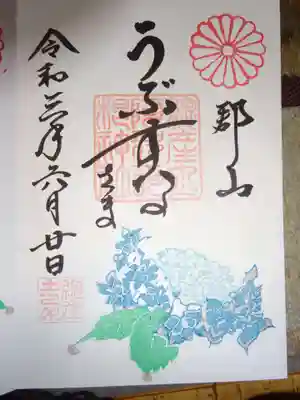 郡山
うぶすな
さま
令和三年六月廿日